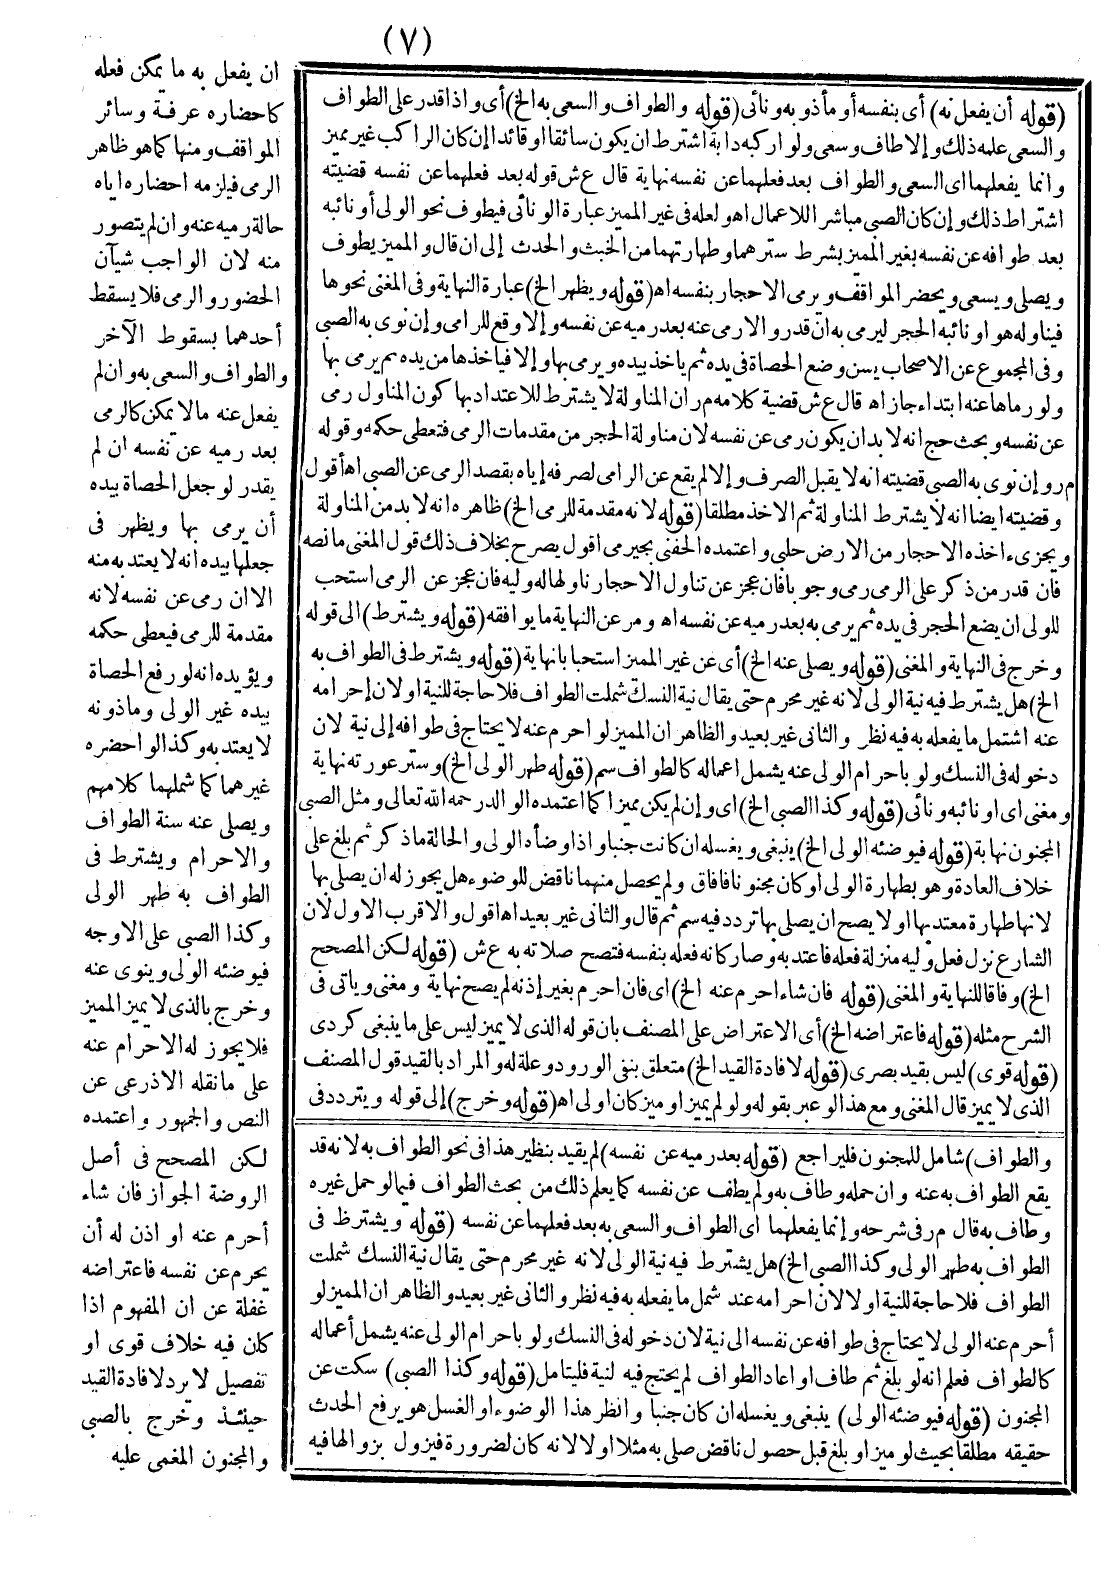 (٧)
(قوله أن يفعل نه) أى بنفسه أو مأذو به و نائى (قوله و الطواف و السعى به الخ) أى و اذا قدر على الطواف
و السعى علمه ذلك و إلا طاف و سعى و لو اركبه دابة اشترط ان يكون سائقا او قائدا إن كان الراكب غير مميز
و انما يفعلهما اى السعى و الطواف بعد فعلهما عن نفسه نهاية قال ع ش قوله بعد فعلهما عن نفسه قضيته
اشتراط ذلك و إن كان الصبى مباشر اللاعمال اهو لعله فى غير المميز عبارة الونائى فيطوف نحو الولى أو نائبه
بعد طوافه عن نفسه بغير المميز بشرط سترهما و طهارتهما من الخبث و الحدث إلى ان قال و المميز يطوف
و يصلى و يسعى و يحضر المواقف و يرمى الاحجار بنفسه اه (قوله و يظهر الخ) عبارة النهاية و فى المغنى نحوها
فيناوله هو او نائبه الحجر ليرمى به ان قدر و الا رمى عنه بعد رميه عن نفسه و إلا وقع للرامى و إن نوى به الصبى
و فى المجموع عن الاصحاب يسن وضع الحصاة فى يده ثم ياخذ بيده و يرمى بها و إلا فياخذها من يده ثم يرمى بها
و لو رماها عنه ابتداء جاز اه قال ع ش قضية كلامه م ر ان المناولة لا يشترط للاعتداد بها كون المناول رمى
عن نفسه و بحث حج انه لا بد ان يكون رمى عن نفسه لان مناولة الحجر من مقدمات الرمى فتعطى حكمه و قوله
م ر و إن نوى به الصبى قضيته انه لا يقبل الصرف و إلا لم يقع عن الرامى لصرفه إياه بقصد الرمى عن الصبى اه أقول
و قضيته ايضا انه لا يشترط المناولة ثم الاخذ مطلقا (قوله لانه مقدمة للرمى الخ) ظاهره انه لا بد من المناولة
و يجزىء اخذه الاحجار من الارض حلبى و اعتمده الحفنى بجيرمى اقول يصرح بخلاف ذلك قول المغنى ما نصه
فان قدر من ذكر على الرمى رمى وجوبا فان عجز عن تناول الاحجار ناولها له وليه فان عجز عن الرمى استحب
للولى ان يضع الحجر فى يده ثم يرمى به بعد رميه عن نفسه اه و مر عن النهاية ما يوافقه (قوله و يشترط) الى قوله
و خرج فى النهاية و المغنى (قوله و يصلى عنه الخ) أى عن غير المميز استحبابا نهاية (قوله و يشترط فى الطواف به
الخ) هل يشترط فيه نية الولى لانه غير محرم حتى يقال نية النسك شملت الطواف فلا حاجة للنية او لان إحرامه
عنه اشتمل ما يفعله به فيه نظر و الثانى غير بعيد و الظاهر ان المميز لو احرم عنه لا يحتاج فى طوافه إلى نية لان
دخوله فى النسك و لو باحرام الولى عنه يشمل اعماله كالطواف سم (قوله طهر الولى الخ) و ستر عورته نهاية
و مغنى اى او نائبه و نائى (قوله و كذا الصبى الخ) اى و إن لم يكن مميزا كما اعتمده الوالد رحمه الله تعالى و مثل الصبى
المجنون نهاية (قوله فيوضئه الولى الخ) ينبغى و يغسله ان كانت جنبا و اذا وضأه الولى و الحالة ماذكر ثم بلغ على
خلاف العادة و هو بطهارة الولى او كان مجنونا فافاق و لم يحصل منهما ناقض للوضوء هل يجوز له ان يصلى بها
لانها طهارة معتد بها او لا يصح ان يصلى بها تردد فيه سم ثم قال و الثانى غير بعيد اه اقول و الاقرب الاول لان
الشارع نزل فعل وليه منزلة فعله فاعتد به و صار كانه فعله بنفسه فتصح صلاته به ع ش (قوله لكن المصحح
الخ) و فاقا للنهاية و المغنى (قوله فان شاء احرم عنه الخ) اى فان احرم بغير إذنه لم يصح نهاية و مغنى و ياتى فى
الشرح مثله (قوله فاعتراضه الخ) أى الاعتراض على المصنف بان قوله الذى لا يميز ليس على ما ينبغى كردى
(قوله قوى) ليس بقيد بصرى (قوله لا فادة القيد الخ) متعلق بنفى الورود و علة له و المراد بالقيد قول المصنف
الذى لا يميز قال المغنى و مع هذا لو عبر بقوله و لو لم يميز او ميز كان اولى اه (قوله و خرج) إلى قوله و يتردد فى
و الطواف) شامل للمجنون فليراجع (قوله بعد رميه عن نفسه) لم يقيد بنظير هذا فى نحو الطواف به لانه قد
يقع الطواف به عنه و ان حمله و طاف به و لم يطف عن نفسه كما يعلم ذلك من بحث الطواف فيما لو حمل غيره
و طاف به قال م ر فى شرحه و إنما يفعلهما اى الطواف و السعى به بعد فعلهما عن نفسه (قوله و يشترط فى
الطواف به طهر الولى و كذا الصبى الخ) هل يشترط فيه نية الولى لانه غير محرم حتى يقال نية النسك شملت
الطواف فلا حاجة للنية او لا لان احرامه عند شمل ما يفعله به فيه نظر و الثانى غير بعيد و الظاهر ان المميز لو
أحرم عنه الولى لا يحتاج فى طوافه عن نفسه الى نية لان دخوله فى النسك و لو باحرام الولى عنه يشمل أعماله
كالطواف فعلم انه لو بلغ ثم طاف او اعاد الطواف لم يحتج فيه لنية فليتامل (قوله و كذا الصبى) سكت عن
المجنون (قوله فيوضئه الولى) ينبغى و يغسله ان كان جنبا و انظر هذا الوضوء او الغسل هو يرفع الحدث
حقيقه مطلقا بحيث لو ميز او بلغ قبل حصول ناقض صلى به مثلا او لا لانه كان لضرورة فيزول بزوالها فيه
ان يفعل به ما يمكن فعله
كاحضاره عرفة و سائر
المواقف و منها كما هو ظاهر
الرمى فيلزمه احضاره اياه
حالة رميه عنه و ان لم يتصور
منه لان الواجب شيآن
الحضور و الرمى فلا يسقط
أحدهما بسقوط الآخر
و الطواف و السعى به و ان لم
يفعل عنه مالا يمكن كالرمى
بعد رميه عن نفسه ان لم
يقدر لو جعل الحصاة بيده
أن يرمى بها و يظهر فى
جعلها بيده انه لا يعتد به منه
الا ان رمى عن نفسه لانه
مقدمة للرمى فيعطى حكمه
و يؤيده انه لو رفع الحصاة
بيده غير الولى و ماذونه
لا يعتد به و كذا لو احضره
غيرهما كما شملهما كلامهم
و يصلى عنه سنة الطواف
و الاحرام و يشترط فى
الطواف به طهر الولى
و كذا الصبى على الاوجه
فيوضئه الولى و ينوى عنه
و خرج بالذى لا يميز المميز
فلا يجوز له الاحرام عنه
على ما نقله الاذرعى عن
النص و الجمهور و اعتمده
لكن المصحح فى أصل
الروضة الجواز فان شاء
أحرم عنه او اذن له أن
يحرم عن نفسه فاعتراضه
غفلة عن ان المفهوم اذا
كان فيه خلاف قوى او
تفصيل لا يرد لافادة القيد
حينئذ و خرج بالصبى
و المجنون المغمى عليه